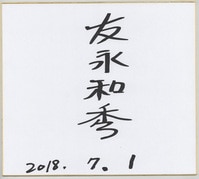 友永和秀
2018. 7. 1